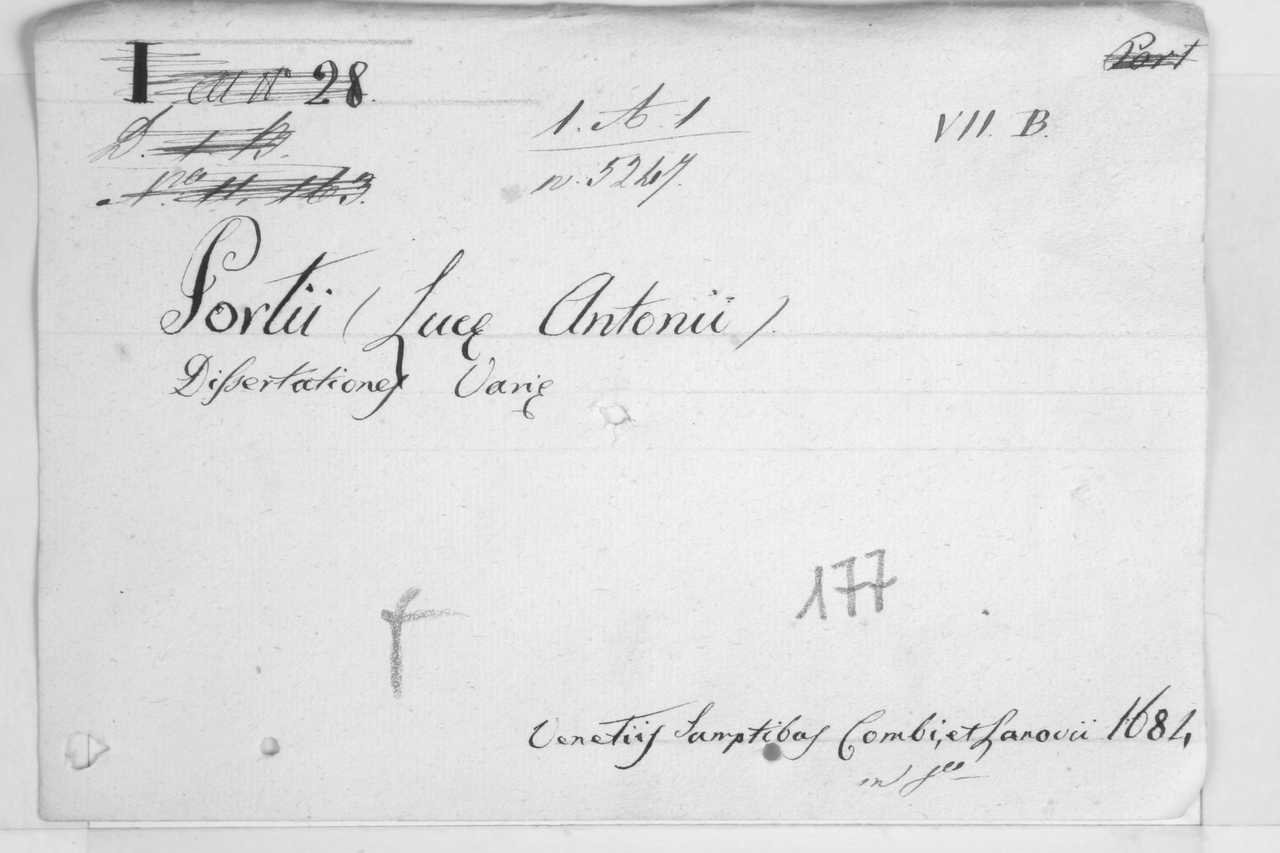 I 28.
Port
D. 1 B.
N.ro II. 163.
1. A. 1
n. 5247.
VII. B.
Portii (Lucę Antonii).
Dissertationes Varię
177
Venetiis Sumptibas Combi, et Lanovii 1684
in